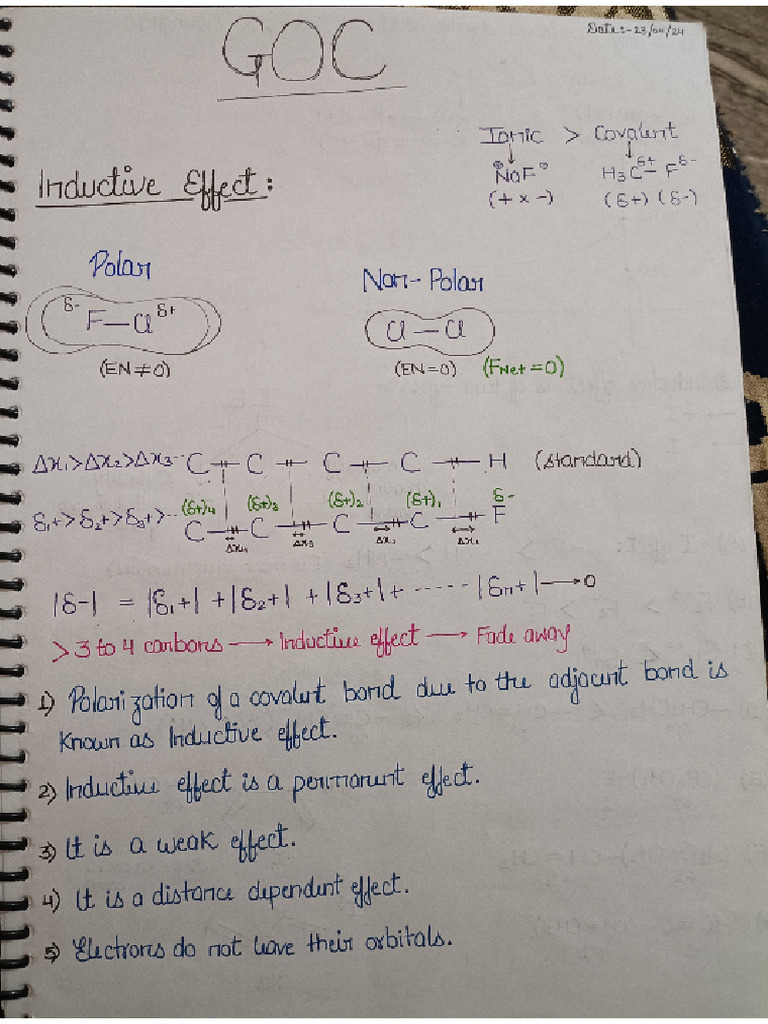 GOC
Date:-23/04/24
Ionic > Covalent
⊕NaF⊖ H3C^δ+–F^δ-
(+ x -) (δ+) (δ-)
Inductive Effect:
Polar
Non-Polar
δ- F–Cl δ+
Cl–Cl
(EN≠0)
(EN=0) (FNet=0)
Δx1>Δx2>Δx3.. C–C–C–C–H (standard)
δ1+>δ2+>δ3+>.. (δ+)4 (δ+)3 (δ+)2 (δ+)1 δ-
C–C–C–C–F
Δx4 Δx3 Δx2 Δx1
|δ-| = |δ1+| + |δ2+| + |δ3+| + ----- |δn+| → 0
> 3 to 4 carbons → Inductive effect → Fade away
1) Polarization of a covalent bond due to the adjacent bond is
known as Inductive effect.
2) Inductive effect is a permanent effect.
3) It is a weak effect.
4) It is a distance dependent effect.
5) Electrons do not leave their orbitals.